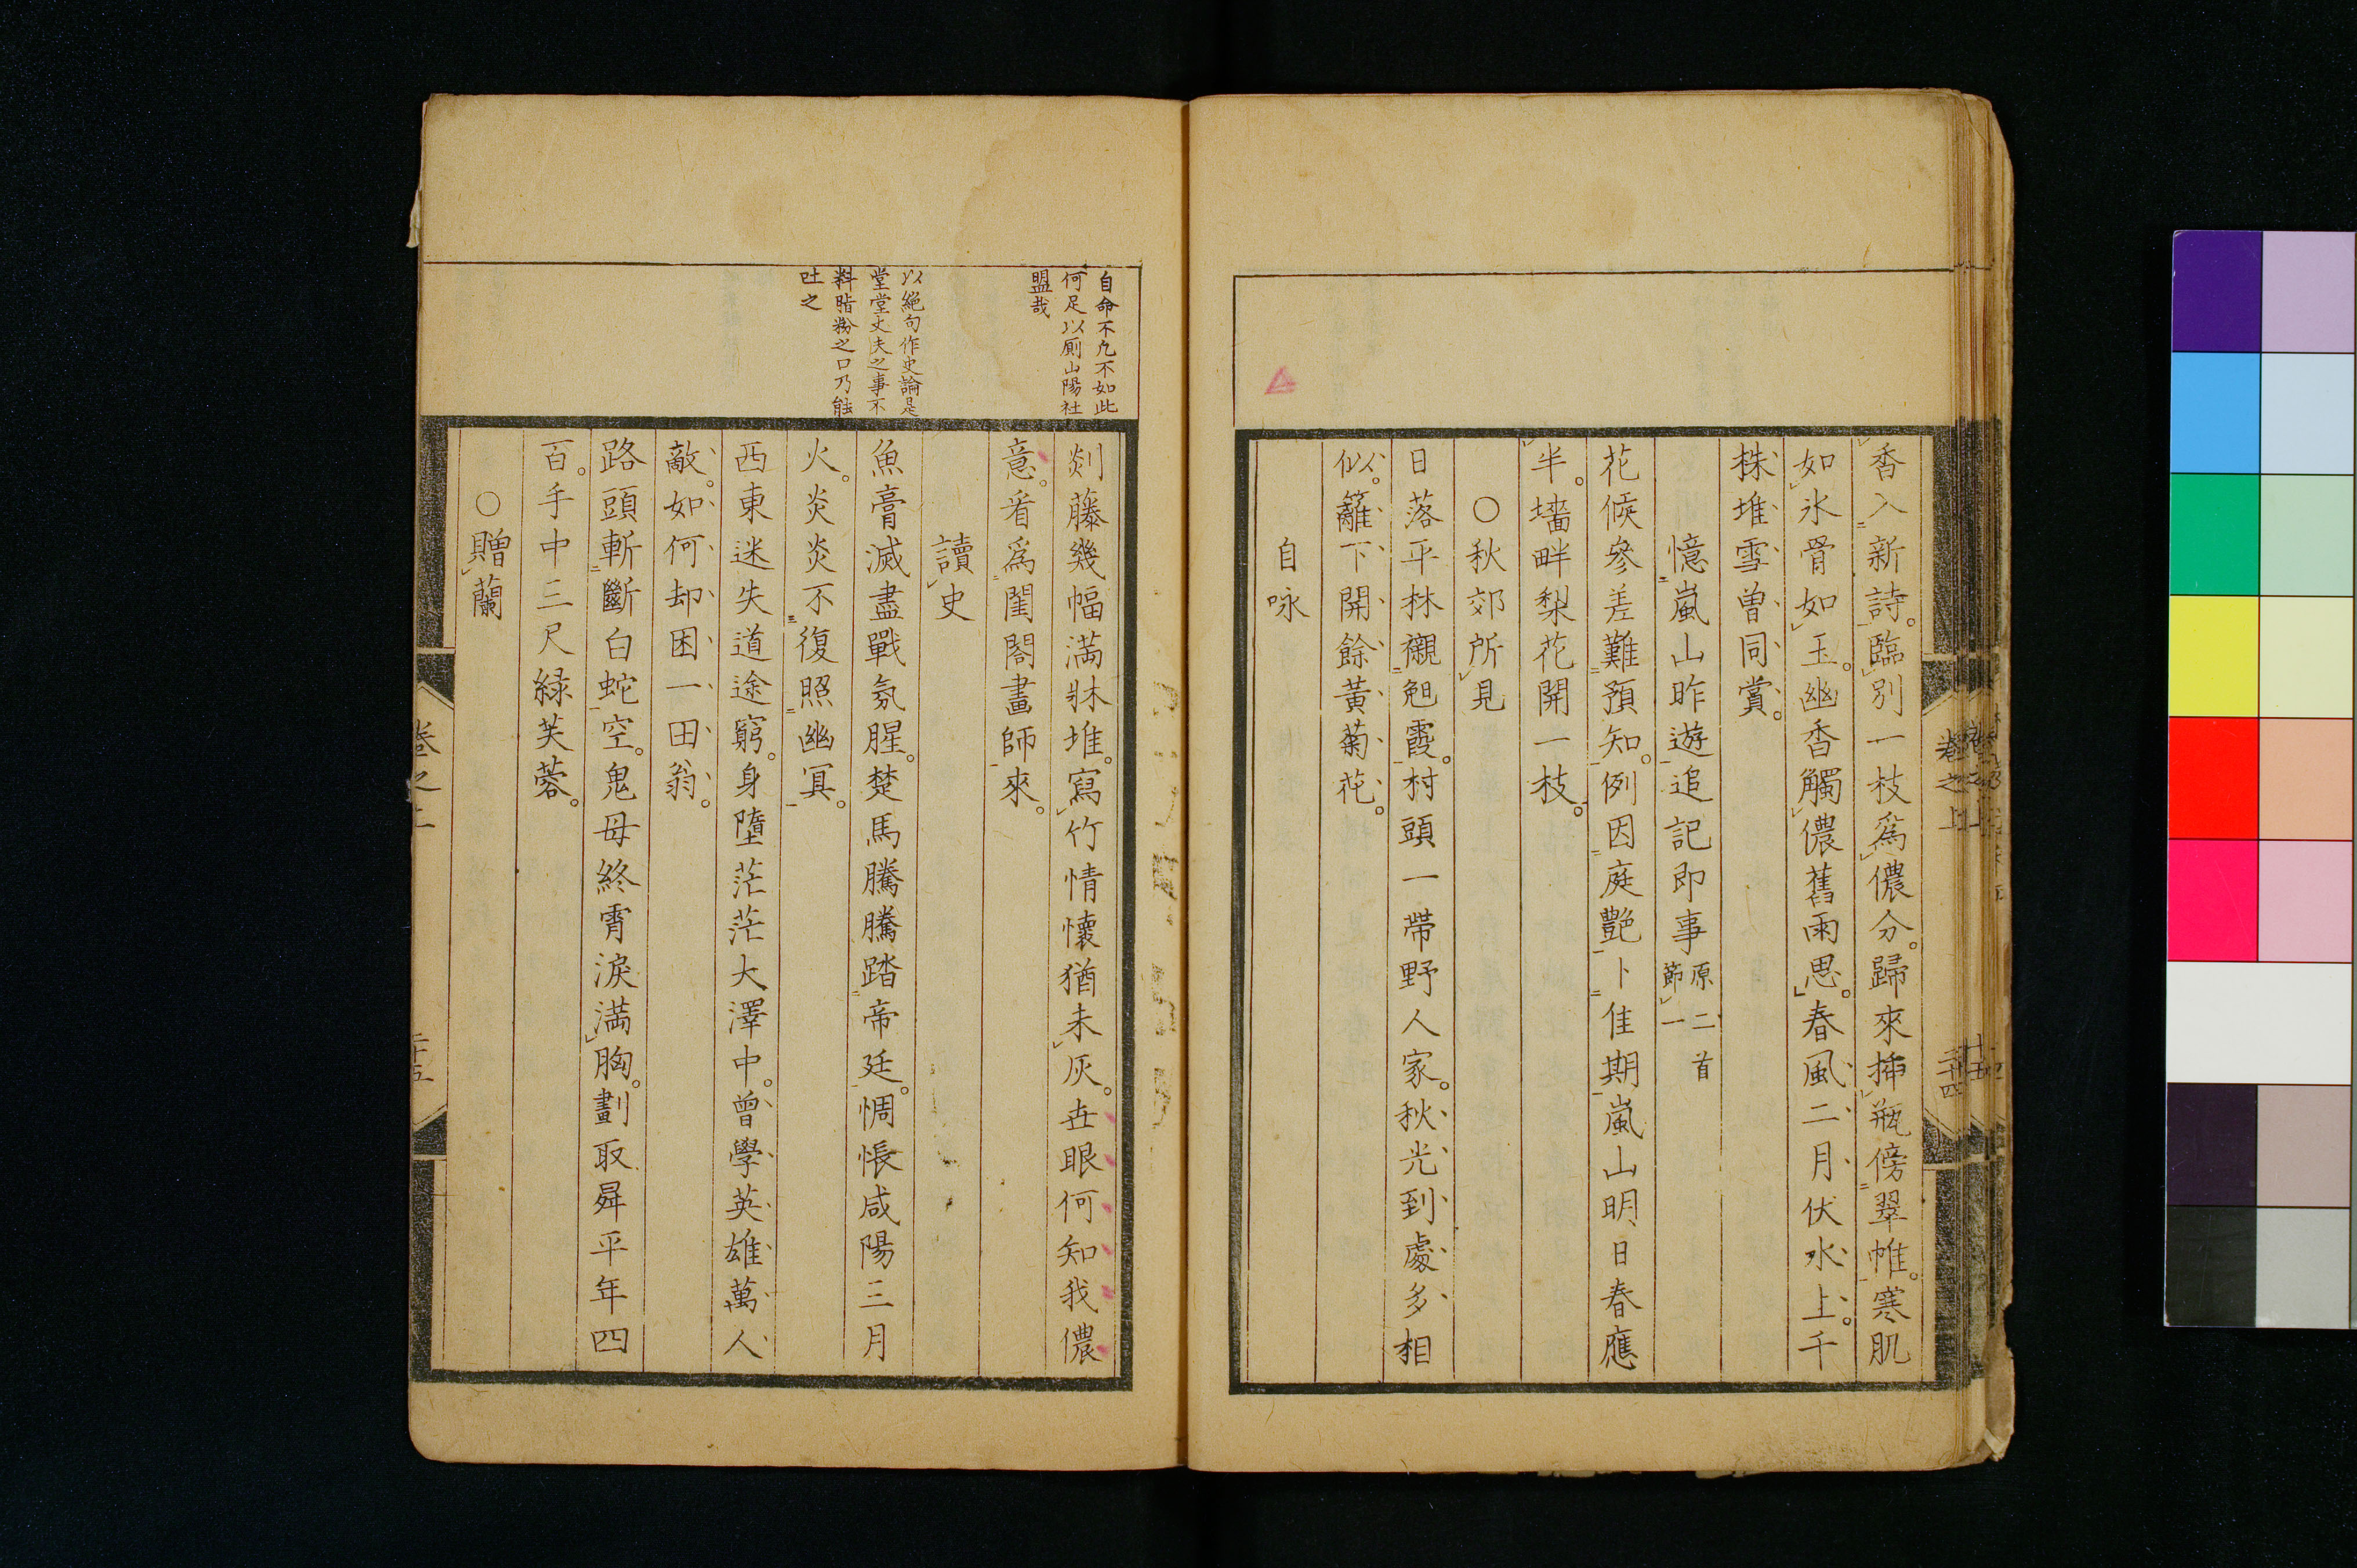 香入新詩。臨別一枝爲儂分。歸來揷瓶傍翠帷。寒肌
如氷骨如玉。幽香觸儂舊雨思。春風二月伏水上。千
株堆雪曽同賞。
憶嵐山昨遊追記即事 原二首
節一
花候參差難預知。例因庭艶卜佳期嵐山明日春應
半。墻畔梨花開一枝。
○秋郊所見
日落平林襯晩霞。村頭一帶野人家。秋光到處多相
似。籬下開餘黃菊花。
自咏
卷之上
二十四
自命不凡不如此
何足以厠山陽社
盟哉
剡藤幾幅満牀堆。寫竹情懷猶未灰。世眼何知我儂
意。看爲閨閤畫師來。
以絶句作史論是
堂堂丈夫之事不
料脂粉之口乃能
吐之
讀史
魚膏滅盡戰氛腥。楚馬騰騰踏帝廷。惆悵咸陽三月
火。炎炎不復照幽冥。
西東迷失道途窮。身墮茫茫大澤中。曾學英雄萬人
敵。如何却困一田翁。
路頭斬斷白蛇空。鬼母終宵淚満胸。劃取舜平年四
百。手中三尺緑芙蓉。
○贈蘭
卷之上
二十五